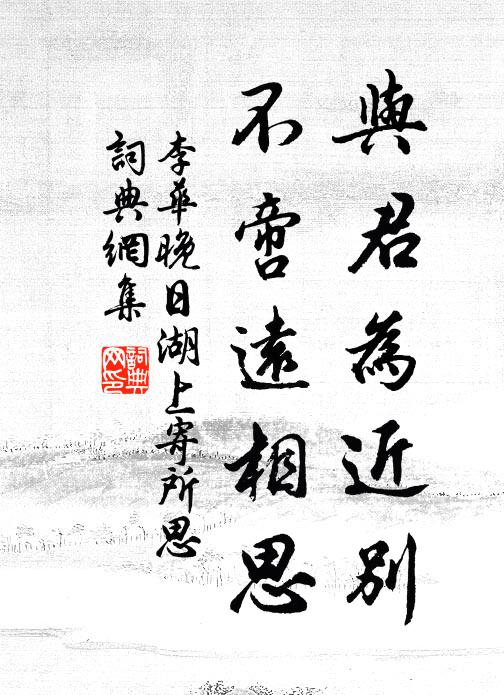 與君為近別
不啻遠相思
李華晚日湖上寄所思
詞典網集
詞典
網印